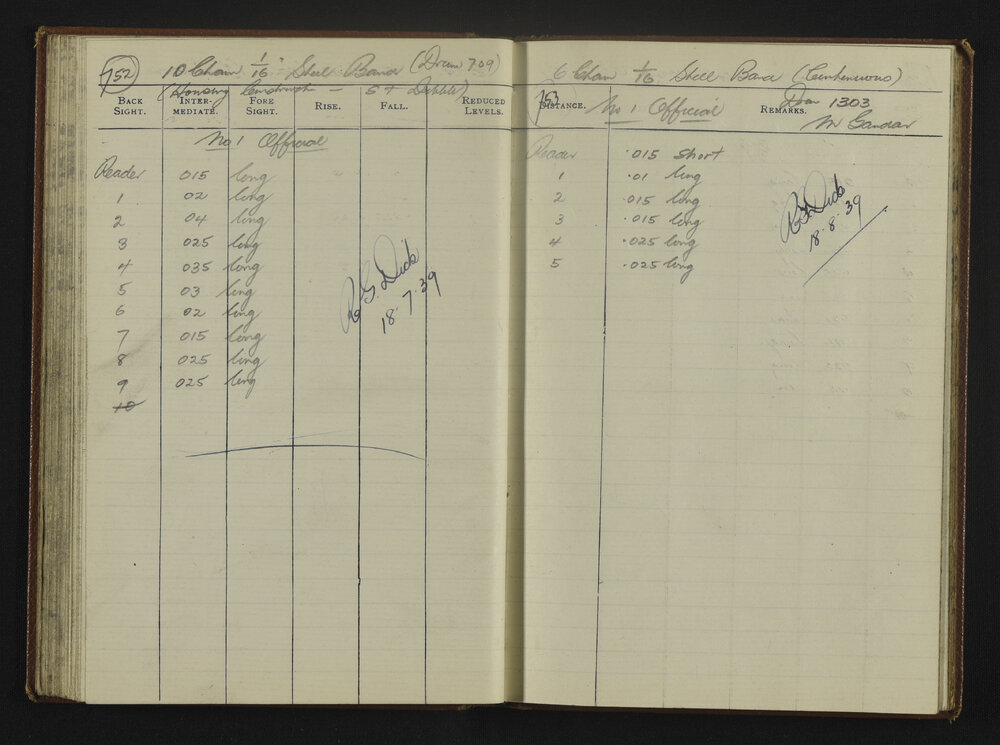 752
10 Chain 1/16" Steel Band (Drum 709)
(Housing Construction — S & Dibble)
BACK SIGHT. INTER-MEDIATE. FORE SIGHT. RISE. FALL. REDUCED LEVELS.
No 1 Official
Reader 015 long
1 02 long
2 04 long
3 025 long
4 035 long
5 03 long
6 02 long
7 015 long
8 025 long
9 025 long
10
R.G. Dick
18.7.39
753
6 Chain 1/16 Steel Band
Drum 1303
DISTANCE. REMARKS.
No 1 Official
Mr
Reader .015 short
1 .01 long
2 .015 long
3 .015 long
4 .025 long
5 .025 long
R.G. Dick
18.8.39